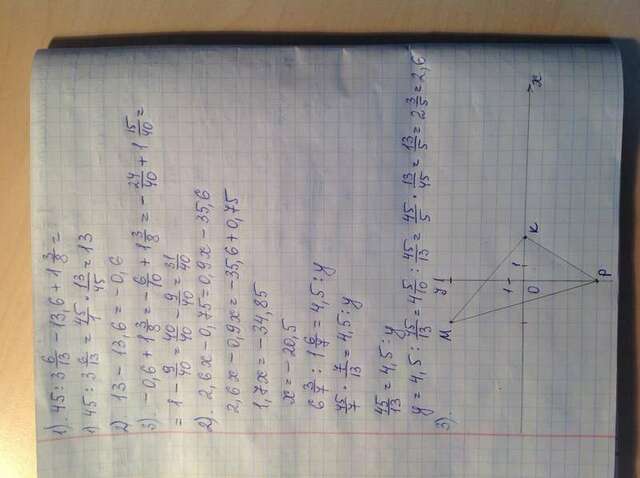 1). 45 : 3 6/13 - 13,6 + 1 3/8 =
1) 45 : 3 6/13 = 45/1 · 13/45 = 13
2) 13 - 13,6 = -0,6
3). -0,6 + 1 3/8 = -6/10 + 1 3/8 = -24/40 + 1 15/40 =
= 1 - 9/40 = 40/40 - 9/40 = 31/40
2). 2,6x - 0,75 = 0,9x - 35,6
2,6x - 0,9x = -35,6 + 0,75
1,7x = -34,85
x = -20,5
6 3/7 : 1 6/7 = 4,5 : y
45/7 · 7/13 = 4,5 : y
45/13 = 4,5 : y
y = 4,5 : 45/13 = 4 5/10 : 45/13 = 45/5 · 13/45 = 13/5 = 2 3/5 = 2,6
3).
y
M
1
1
0
K
x
P